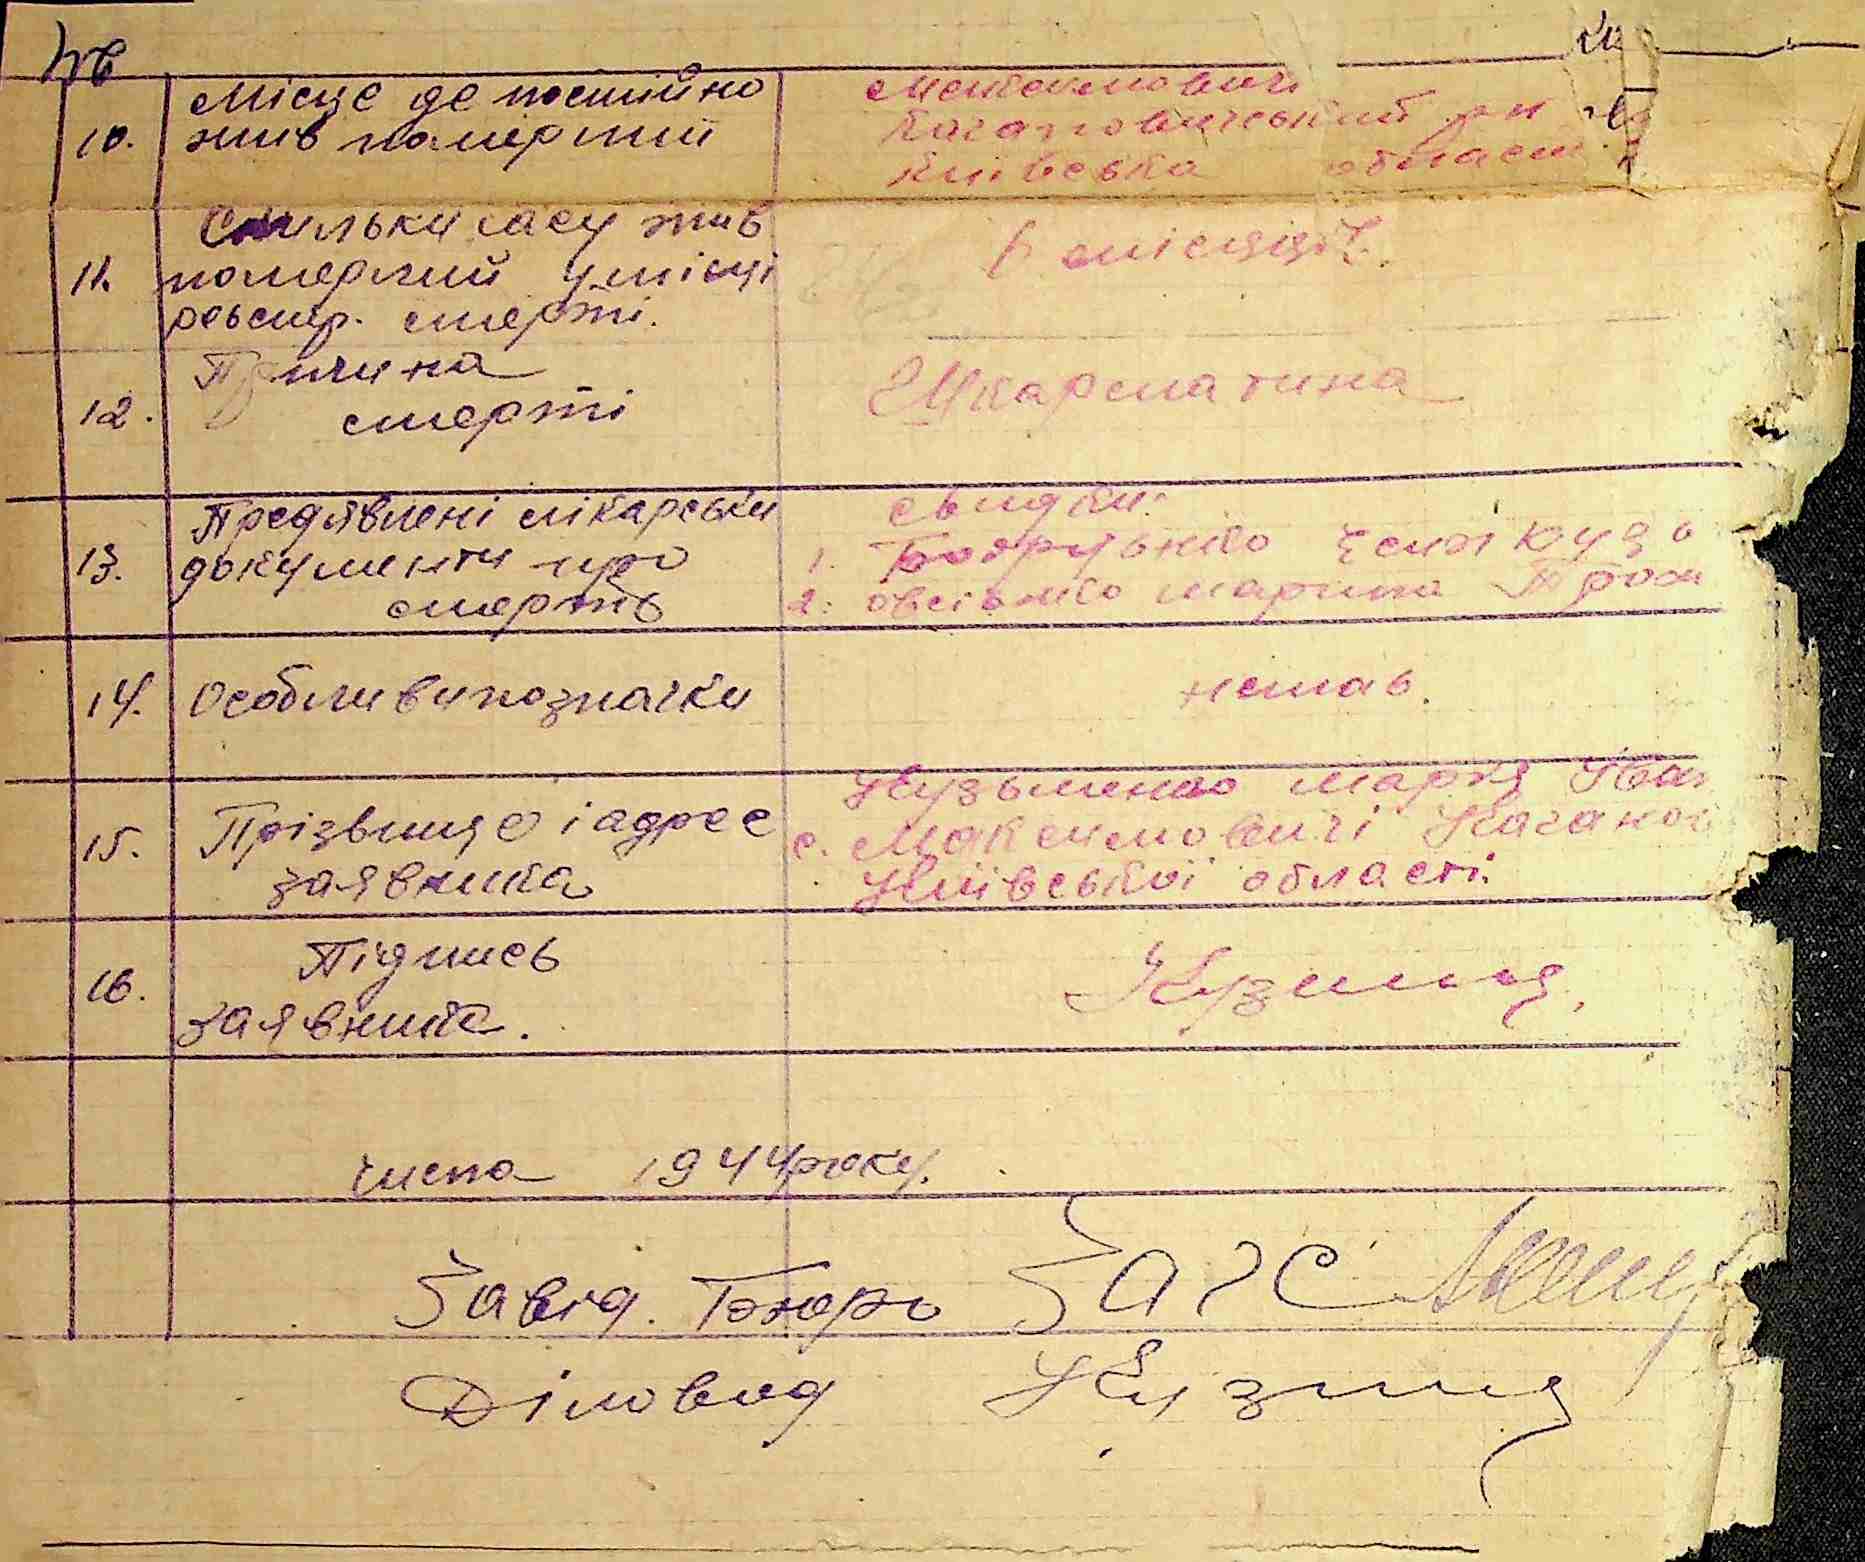 10.
Місце де постійно
жив померший
Максимовичі
Кагановичський рн
Київська області
11.
Скильки часу жив
померлий у місці
реьстр. смерті.
6 місяців.
12.
Причина
смерті
Шкарлатина
13.
Предявлені лікарськи
документи про
смерть
свидки:
1.
2. овсієнко марина Трохи
14.
Особливи позначки
немає.
15.
Прізвище і адрес
заявника
Кузьменко марія Іван
с. Максимовичі Каганов
Київської області.
16.
Підпись
заявника.
числа 1944 року.
Завід. Бюро Загс
Діловод